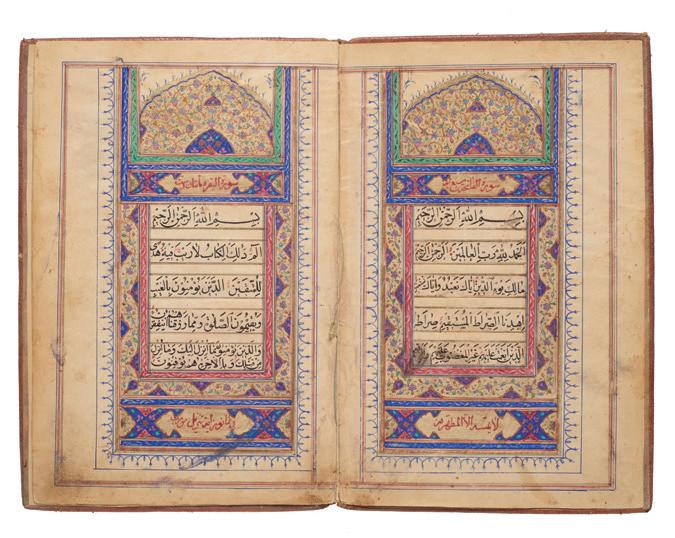 سورة الفاتحة سبع
بسم الله الرحمن الرحيم
الحمد لله رب العالمين الرحمن الرحيم
مالك يوم الدين اياك نعبد واياك نستعين
اهدنا الصراط المستقيم صراط
الذين انعمت عليهم غير المغضوب عليهم ولا
لا يمسه الا المطهرون
سورة البقرة مأتان
بسم الله الرحمن الرحيم
الم ذالك الكتاب لا ريب فيه هدى
للمتقين الذين يؤمنون بالغيب
ويقيمون الصلوة ومما رزقناهم ينفقون
والذين يؤمنون بما انزل اليك وما انزل
من قبلك وبالآخرة هم يوقنون